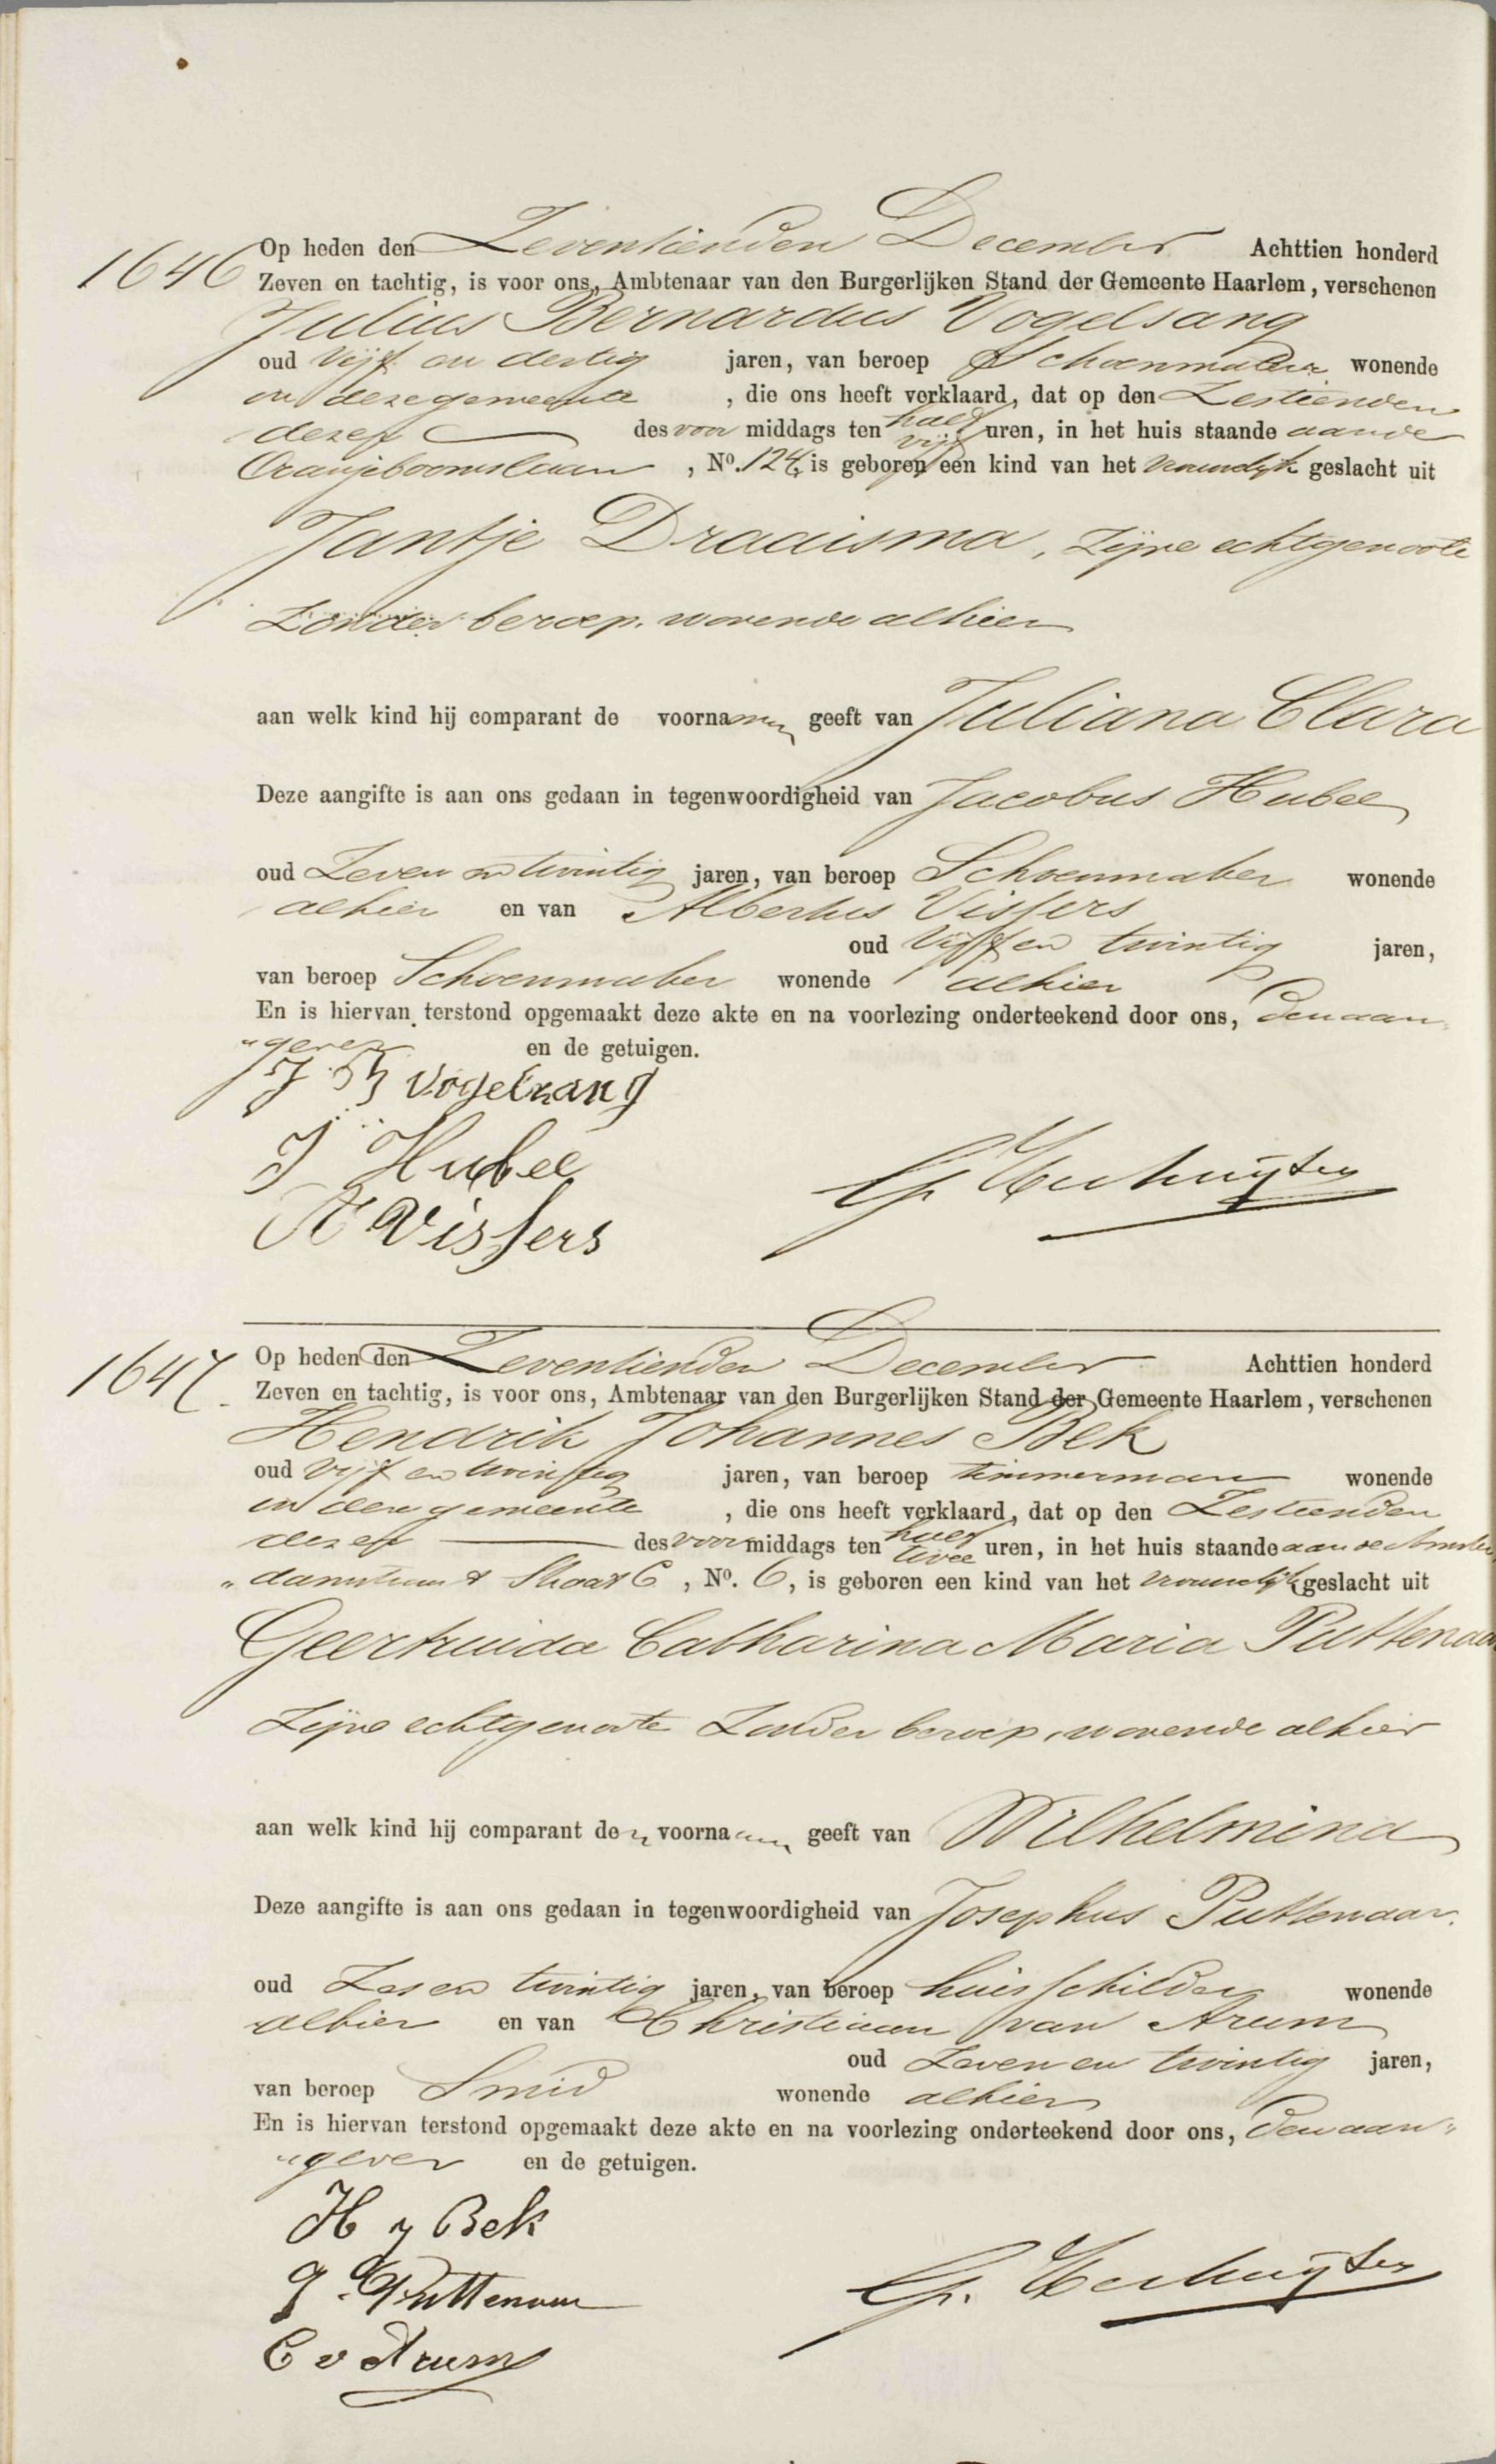 1646 Op heden den Zeventienden December Achttien honderd
Zeven en tachtig, is voor ons, Ambtenaar van den Burgerlijken Stand der Gemeente Haarlem, verschenen
Julius Bernardus Vogelsang
oud Vijf en dertig jaren, van beroep Schoenmaker wonende
in deze gemeente , die ons heeft verklaard, dat op den Zestienden
dezer des voor middags ten half vijf uren, in het huis staande aan de
Oranjeboomslaan , No. 124, is geboren een kind van het vrouwelijk geslacht uit
Jantje Draaisma, Zijne echtgenoote
Zonder beroep, wonende alhier
aan welk kind hij comparant de voornamen geeft van Juliana Clara
Deze aangifte is aan ons gedaan in tegenwoordigheid van Jacobus Hubee
oud Zeven en twintig jaren, van beroep Schoenmaker wonende
alhier en van Albertus Vissers
oud Vijf en twintig jaren,
van beroep Schoenmaker wonende alhier
En is hiervan terstond opgemaakt deze akte en na voorlezing onderteekend door ons, den aan„
„gever en de getuigen.
J B Vogelzang
J Hubee
A Vissers
1647. Op heden den Zeventienden December Achttien honderd
Zeven en tachtig, is voor ons, Ambtenaar van den Burgerlijken Stand der Gemeente Haarlem, verschenen
Hendrik Johannes Bek
oud Vijf en twintig jaren, van beroep timmerman wonende
in deze gemeente , die ons heeft verklaard, dat op den Zestienden
dezer des voor middags ten half twee uren, in het huis staande aan de
Straat 6 , No. 6, is geboren een kind van het vrouwelijk geslacht uit
Geertruida Catharina Maria Puttenaar
Zijne echtgenoote Zonder beroep, wonende alhier
aan welk kind hij comparant den voornaam geeft van Wilhelmina
Deze aangifte is aan ons gedaan in tegenwoordigheid van Josephus Puttenaar.
oud Zes en twintig jaren, van beroep huisschilder wonende
alhier en van Christiaan van Arum
oud Zeven en twintig jaren,
van beroep Smid wonende alhier
En is hiervan terstond opgemaakt deze akte en na voorlezing onderteekend door ons, den aan„
„gever en de getuigen.
H J Bek
J Puttenaar
C v Arum